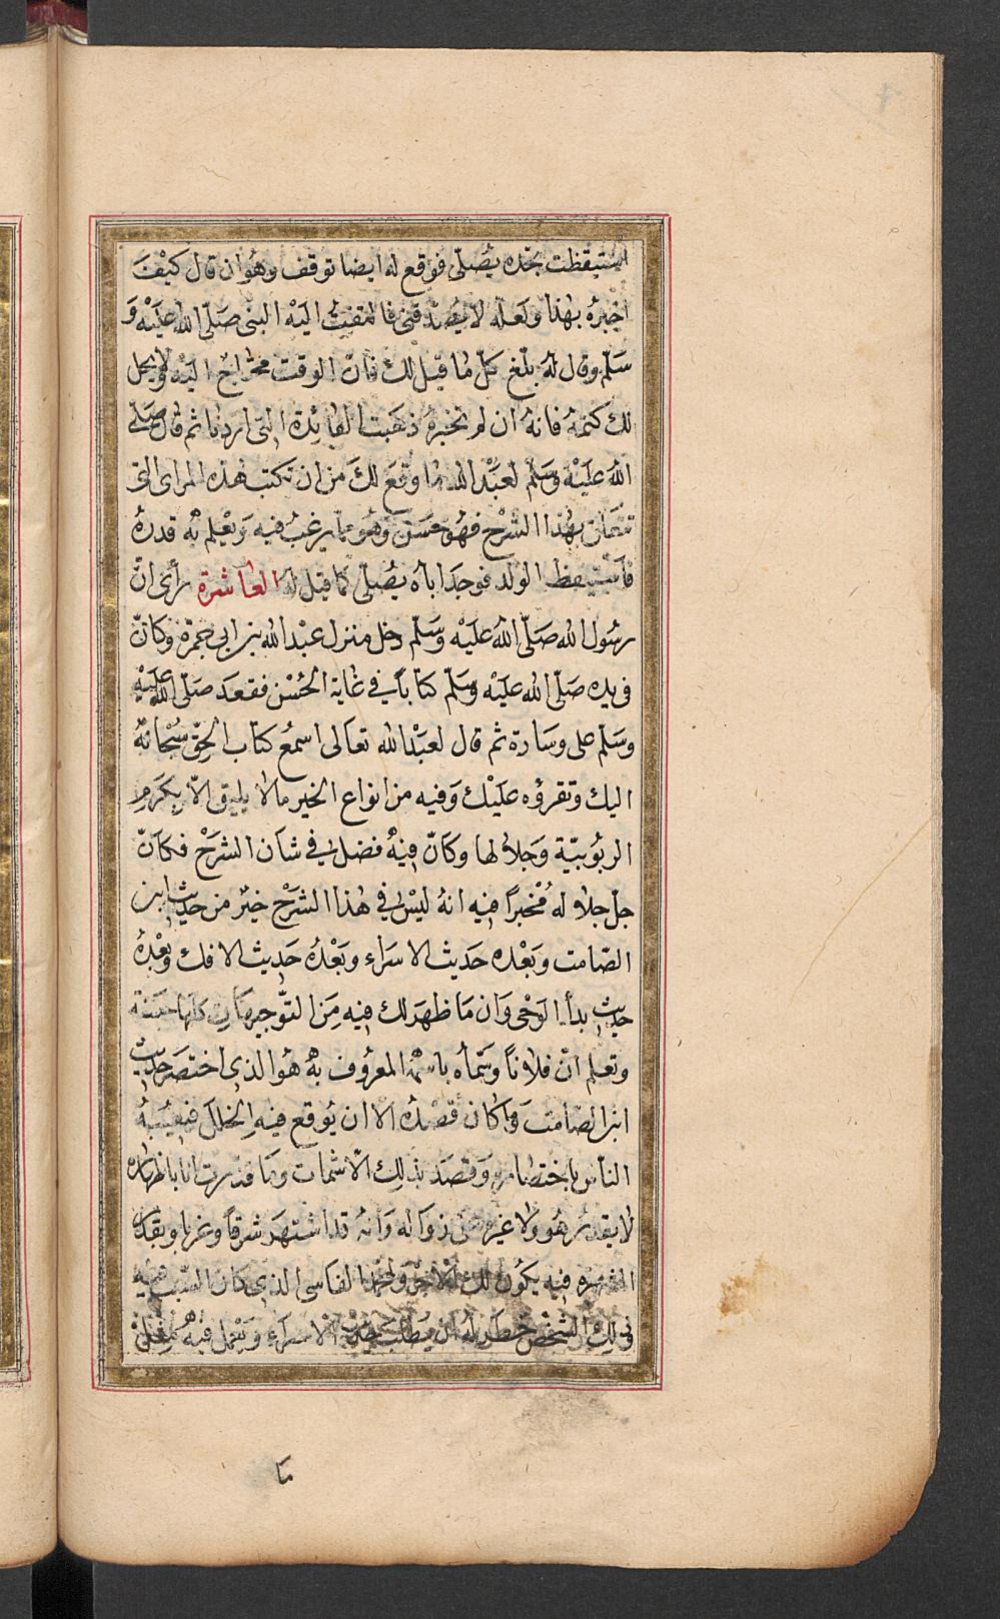 استيقظت تجده يصلى فوقع له ايضا توقف وهو ان قال كيف
اخبره بهذا ولعله لا يصدقنى فالتفت اليه النبى صلى الله عليه و
سلم وقال له بلغ كل ما قيل لك فان الوقت محتاج اليه ولا يحل
لك كتمه فانه ان لم تخبره ذهبت الفائدة التى اردنا ثم قال صلى
الله عليه وسلم لعبد الله ما وقع لك من ان تكتب هذه المراى التى
تتعلق بهذا الشرح فهو حسن وهو مما يرغب فيه ويعلم به قدره
فاستيقظ الولد فوجد اباه يصلى كما قيل له العاشرة رأى ان
رسول الله صلى الله عليه وسلم دخل منزل عبد الله بن ابى جمرة وكان
فى يده صلى الله عليه وسلم كتابا فى غاية الحسن فقعد صلى الله عليه
وسلم على وسادة ثم قال لعبد الله تعالى اسمع كتاب الحق سبحانه
اليك وتقرؤه عليك وفيه من انواع الخير ما لا يليق الا بكرم
الربوبية وجلالها وكان فيه فضل فى شان الشرح فكان
جل جلاله مخبرا فيه انه ليس فى هذا الشرح خير من حديث ابن
الصامت وبعده حديث الاسراء وبعده حديث الافك وبعده
حديث بدأ الوحى وان ما ظهر لك فيه من التوجيهات كلها حسنة
وتعلم ان فلانا وسماه باسمه المعروف به هو الذى اختصر حديث
ابن الصامت وما كان قصده الا ان يوقع فيه الخلل فيعيبه
الناس باختصاره وقصد بذلك الاشمات وما قدرت انا باظهاره
لا يقدر هو ولا غيره على زواله وانه قد اشتهر شرقا وغربا وبقدر
الشهرة فيه يكون لك الاجر ولمحمد الفاسى الذى كان السبب فيه
فى ذلك الشخص خطر له ان يطلب حديث الاسراء ويعمل فيه مثل
ما